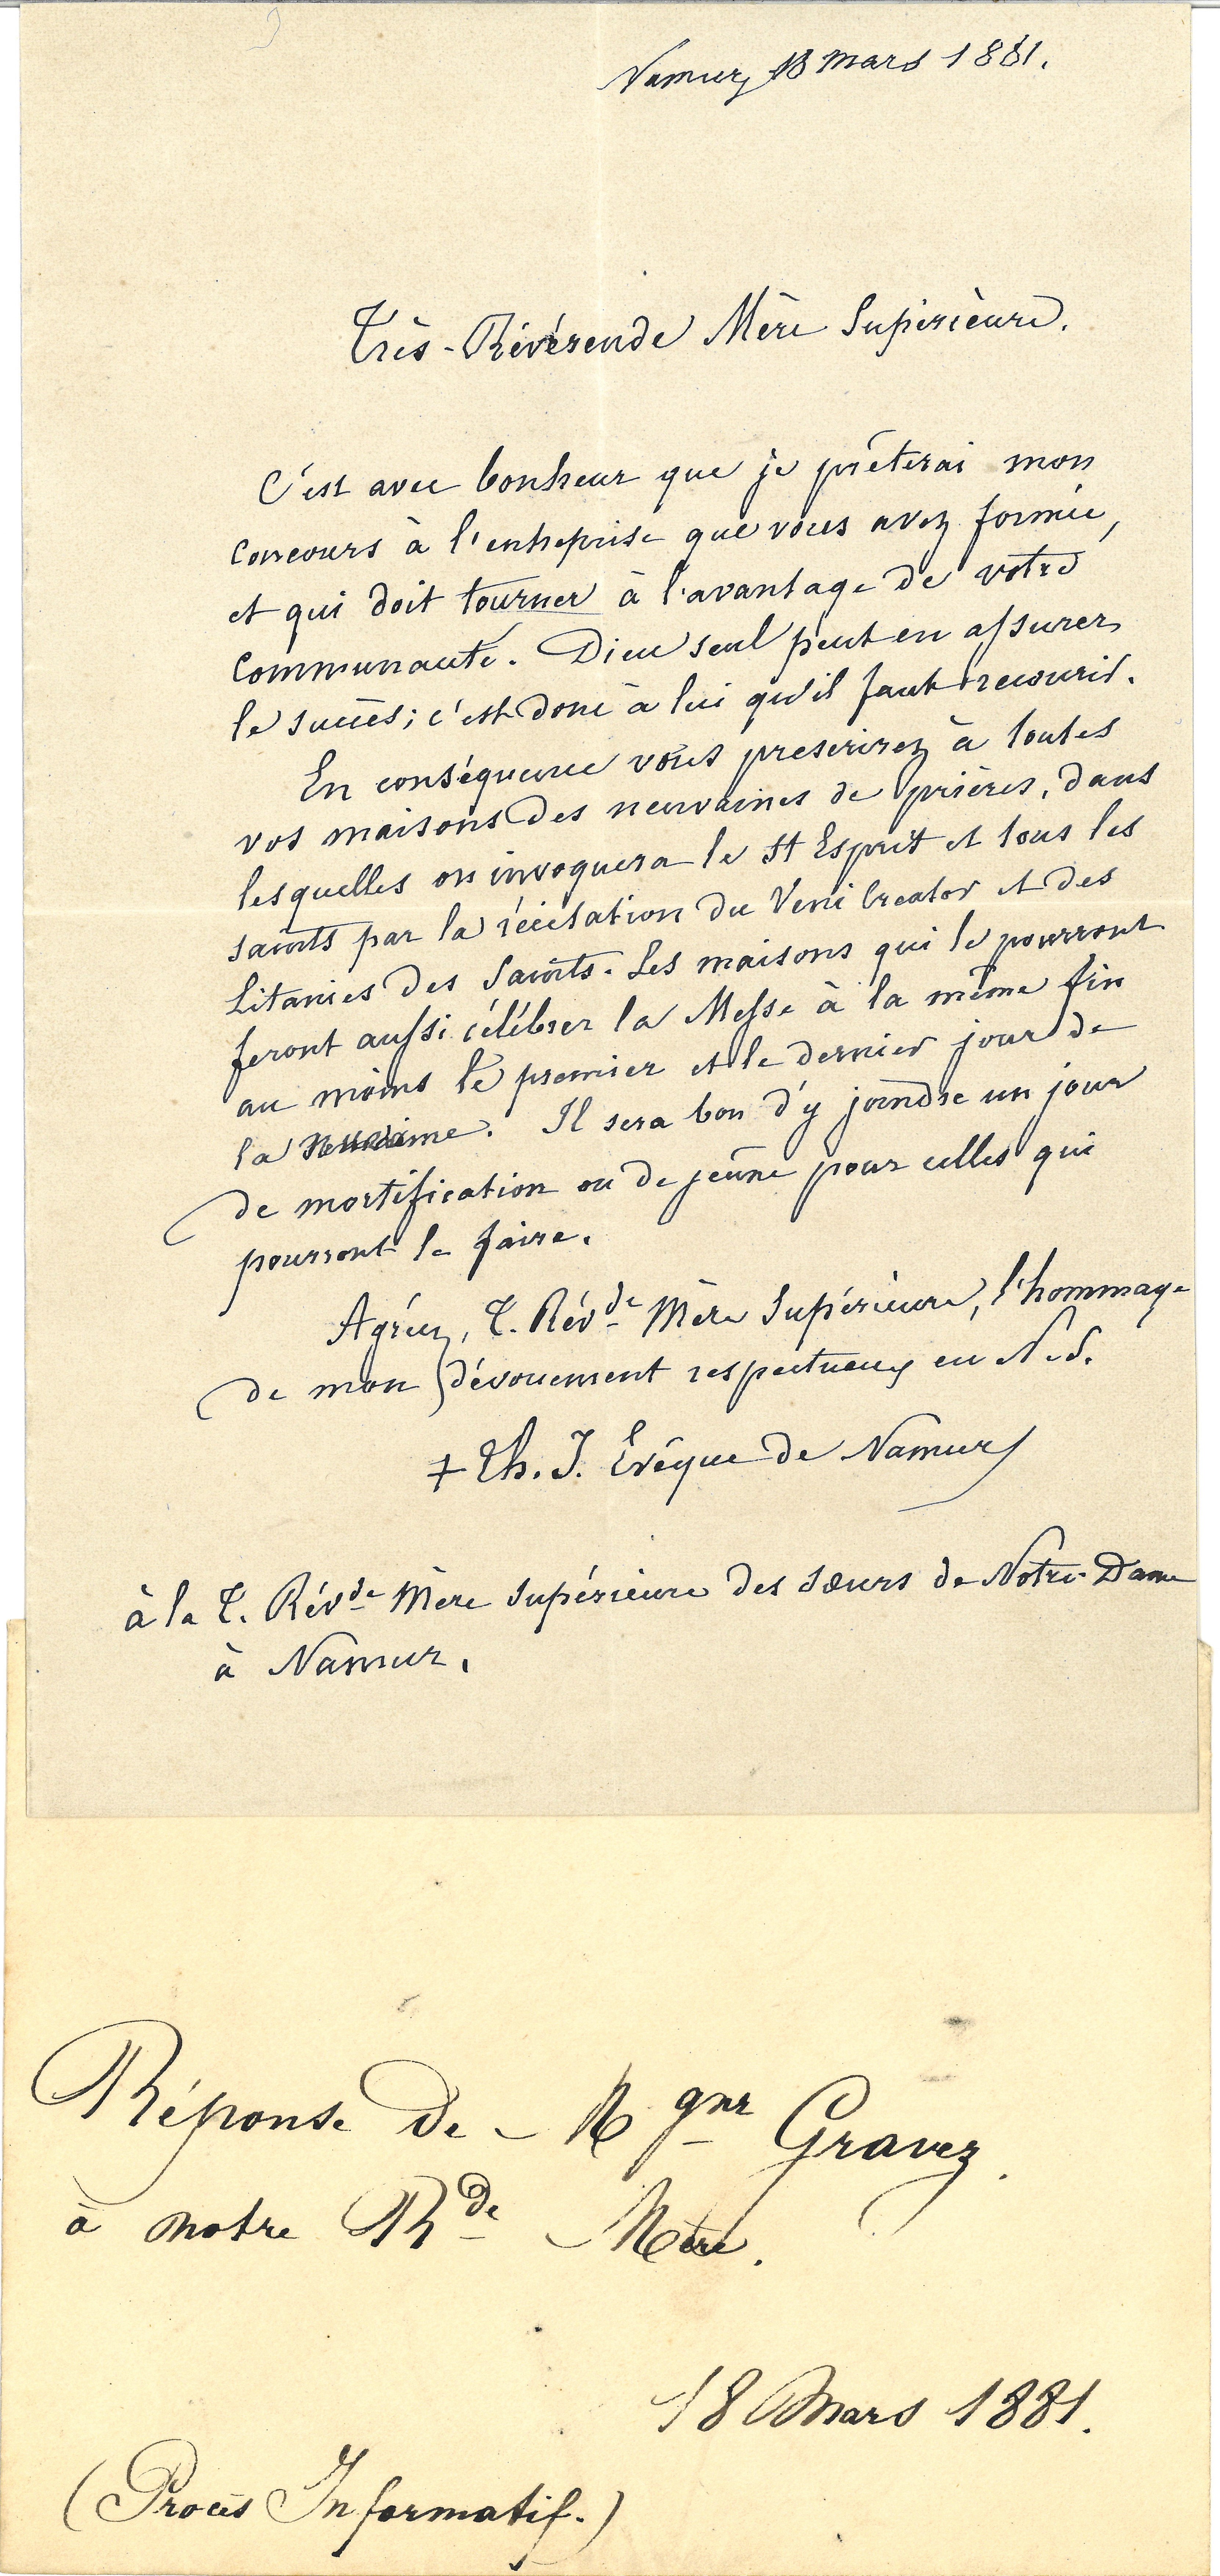 Namur, 18 mars 1881.
Très-Révérende Mère Supérieure.
C'est avec bonheur que je prêterai mon
concours à l'entreprise que vous avez formée,
et qui doit tourner à l'avantage de votre
communauté. Dieu seul peut en assurer
le succès; c'est donc à lui qu'il faut recourir.
En conséquence vous prescrirez à toutes
vos maisons des neuvaines de prières, dans
lesquelles on invoquera le St Esprit et tous les
saints par la récitation du Veni Creator et des
Litanies des Saints. Les maisons qui le pourront
feront aussi célébrer la Messe à la même fin
au moins le premier et le dernier jour de
la neuvaine. Il sera bon d'y joindre un jour
de mortification ou de jeûne pour celles qui
pourront le faire.
Agréez, T. Révde Mère Supérieure, l'hommage
de mon dévouement respectueux en N.S.
+ Th. J. Evêque de Namur
à la T. Révde Mère Supérieure des Sœurs de Notre-Dame
à Namur.
Réponse de Mgnr Gravez.
à notre Rde Mère.
18 Mars 1881.
(Procès Informatif.)